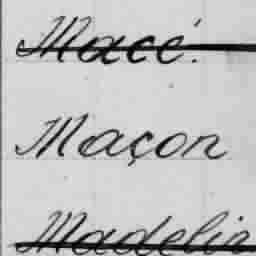 Macé.
Maçon
Madelin